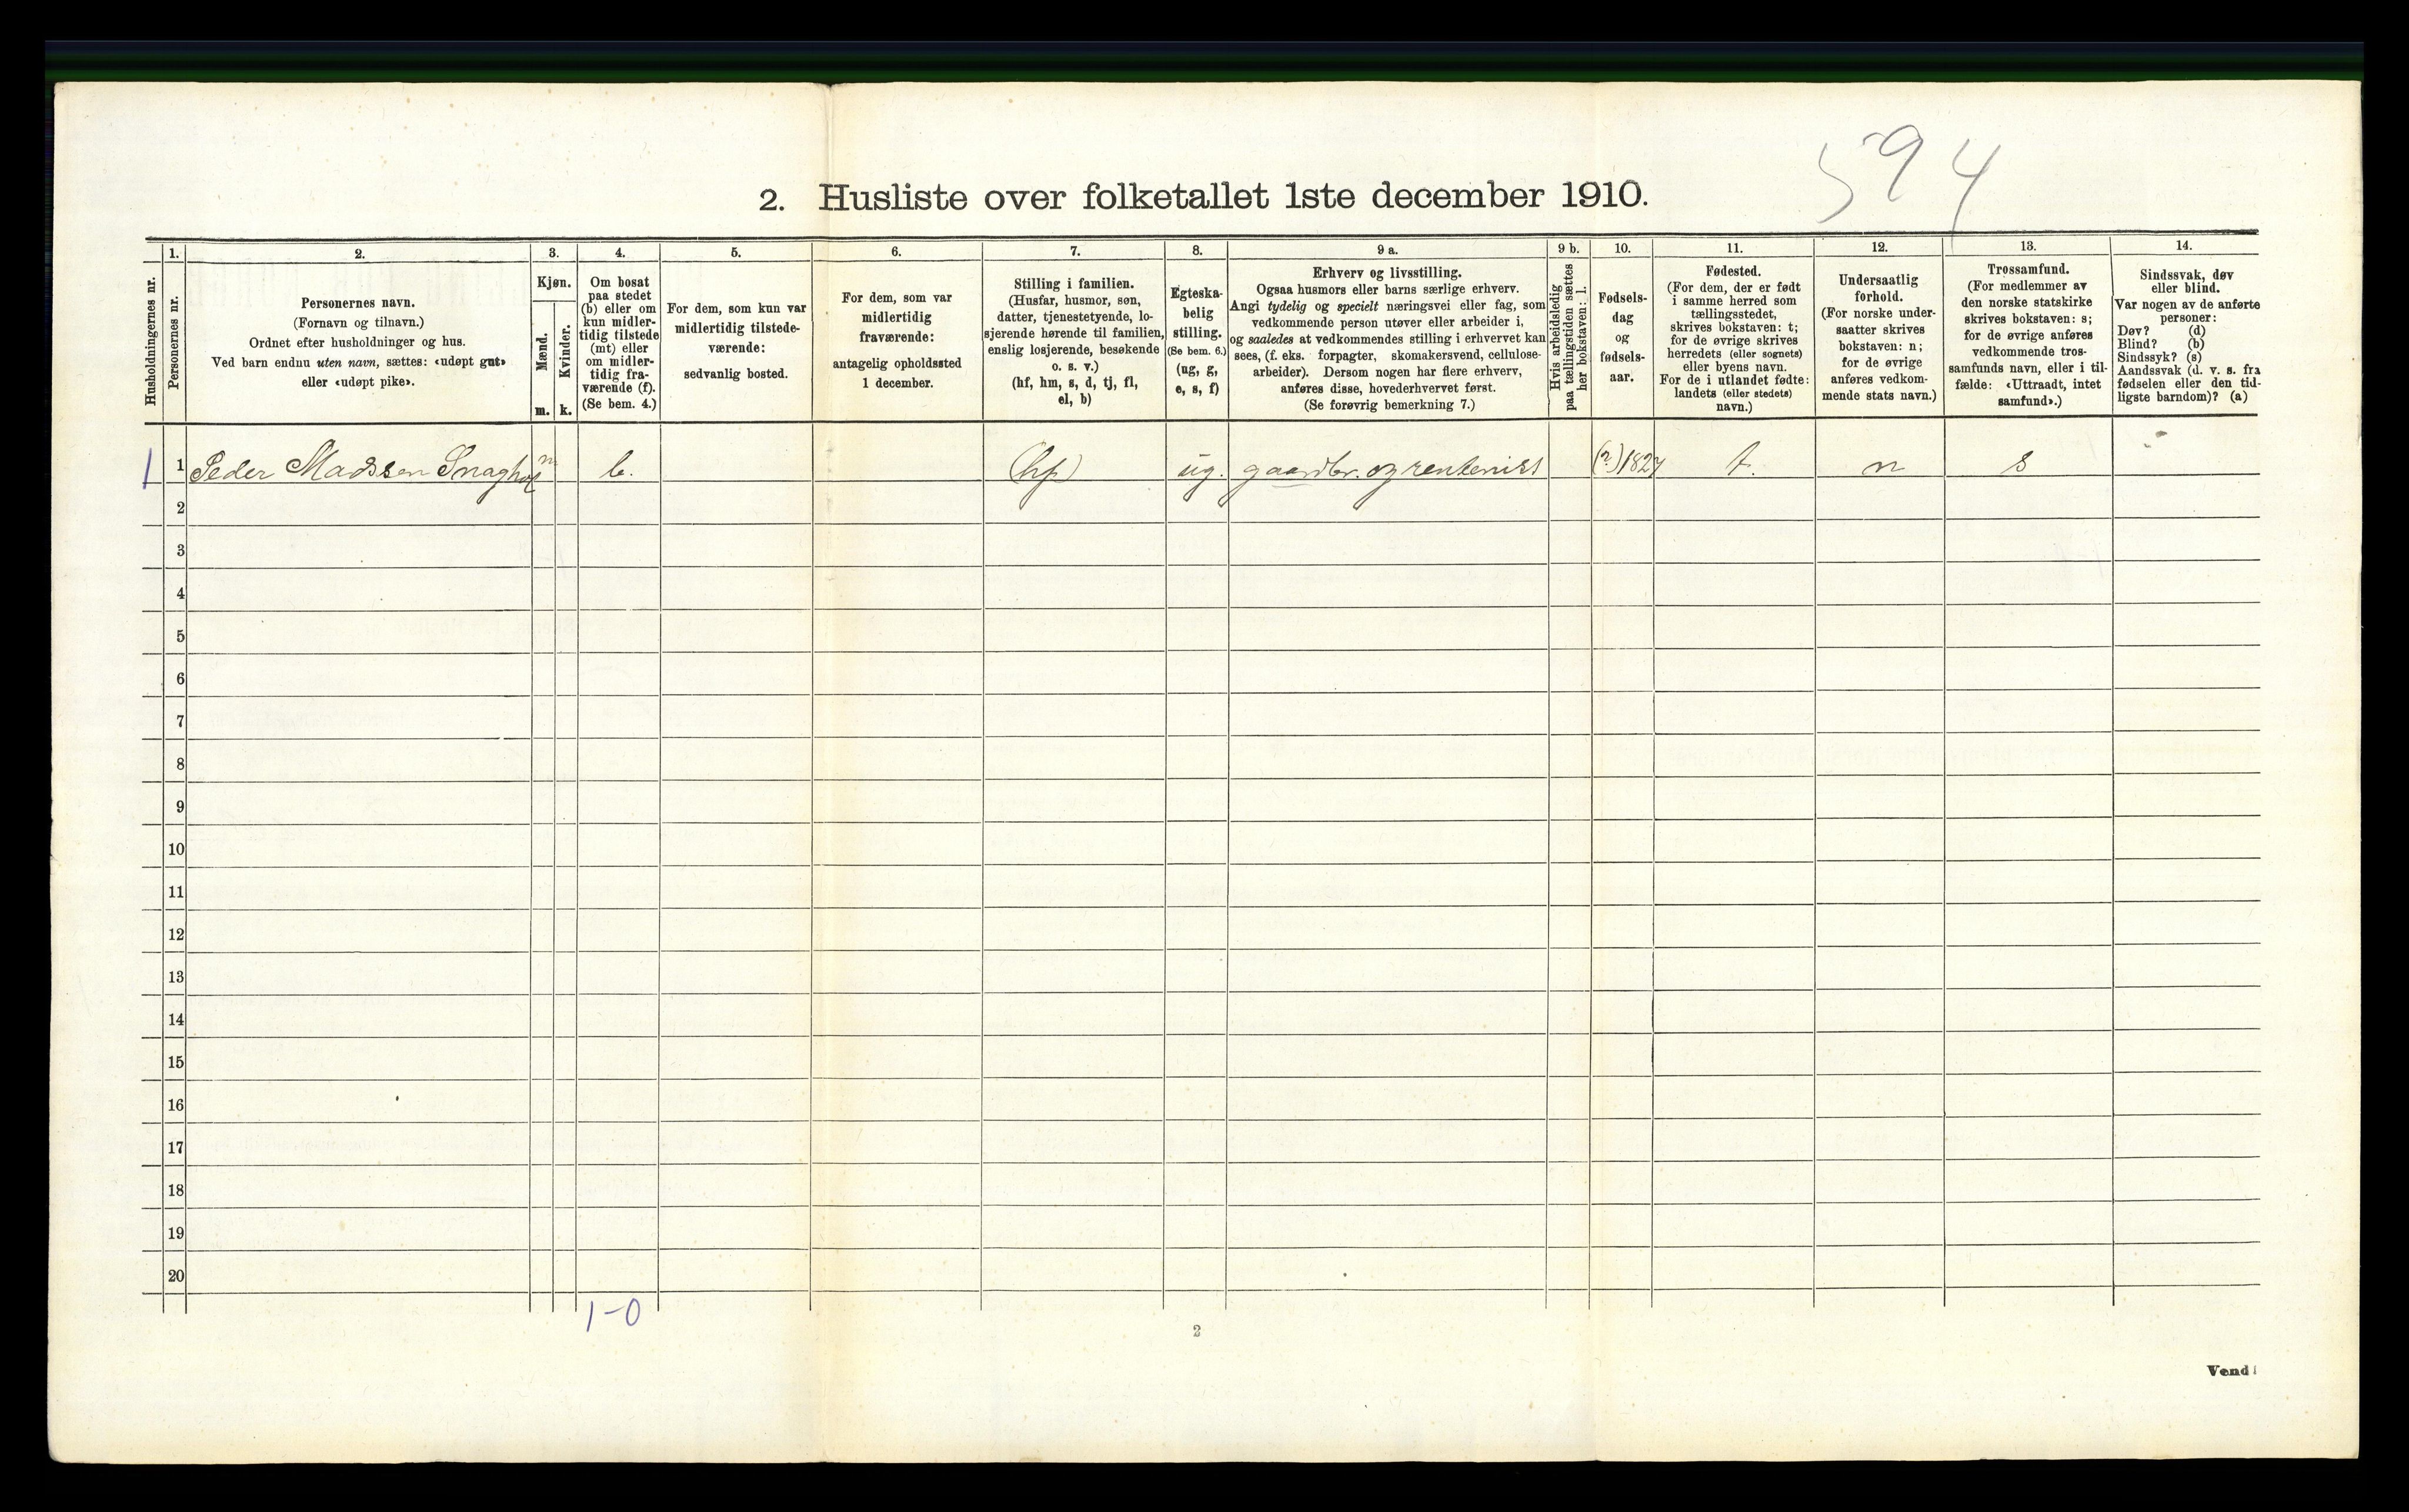 594
2. Husliste over folketallet 1ste december 1910.
Husholdningernes nr.
1.
Personernes nr.
2.
Personernes navn.
(Fornavn og tilnavn.)
Ordnet efter husholdninger og hus.
Ved barn endnu uten navn, sættes: «udøpt gut»
eller «udøpt pike».
3.
Kjøn.
Mænd.
Kvinder.
m. k.
4.
Om bosat
paa stedet
(b) eller om
kun midler-
tidig tilstede
(mt) eller
om midler-
tidig fra-
værende (f).
(Se bem. 4.)
5.
For dem, som kun var
midlertidig tilstede-
værende:
sedvanlig bosted.
6.
For dem, som var
midlertidig
fraværende:
antagelig opholdssted
1 december.
7.
Stilling i familien.
(Husfar, husmor, søn,
datter, tjenestetyende, lo-
sjerende hørende til familien,
enslig losjerende, besøkende
o. s. v.)
(hf, hm, s, d, tj, fl,
el, b)
8.
Egteska-
belig
stilling.
(Se bem. 6.)
(ug, g,
e, s, f)
9 a.
Erhverv og livsstilling.
Ogsaa husmors eller barns særlige erhverv.
Angi tydelig og specielt næringsvei eller fag, som
vedkommende person utøver eller arbeider i,
og saaledes at vedkommendes stilling i erhvervet kan
sees, (f. eks. forpagter, skomakersvend, cellulose-
arbeider). Dersom nogen har flere erhverv,
anføres disse, hovederhvervet først.
(Se forøvrig bemerkning 7.)
9 b.
Hvis arbeidsledig
paa tællingstiden sættes
her bokstaven: l.
10.
Fødsels-
dag
og
fødsels-
aar.
11.
Fødested.
(For dem, der er født
i samme herred som
tællingsstedet,
skrives bokstaven: t;
for de øvrige skrives
herredets (eller sognets)
eller byens navn.
For de i utlandet fødte:
landets (eller stedets)
navn.)
12.
Undersaatlig
forhold.
(For norske under-
saatter skrives
bokstaven: n;
for de øvrige
anføres vedkom-
mende stats navn.)
13.
Trossamfund.
(For medlemmer av
den norske statskirke
skrives bokstaven: s;
for de øvrige anføres
vedkommende tros-
samfunds navn, eller i til-
fælde: «Uttraadt, intet
samfund».)
14.
Sindssvak, døv
eller blind.
Var nogen av de anførte
personer:
Døv? (d)
Blind? (b)
Sindssyk? (s)
Aandssvak (d. v. s. fra
fødselen eller den tid-
ligste barndom)? (a)
1 1 Peder Madssen m b. (hf) ug. gaardbr. og rentenist (?) 1827 t. n s
2
3
4
5
6
7
8
9
10
11
12
13
14
15
16
17
18
19
20
1-0
2
Vend!